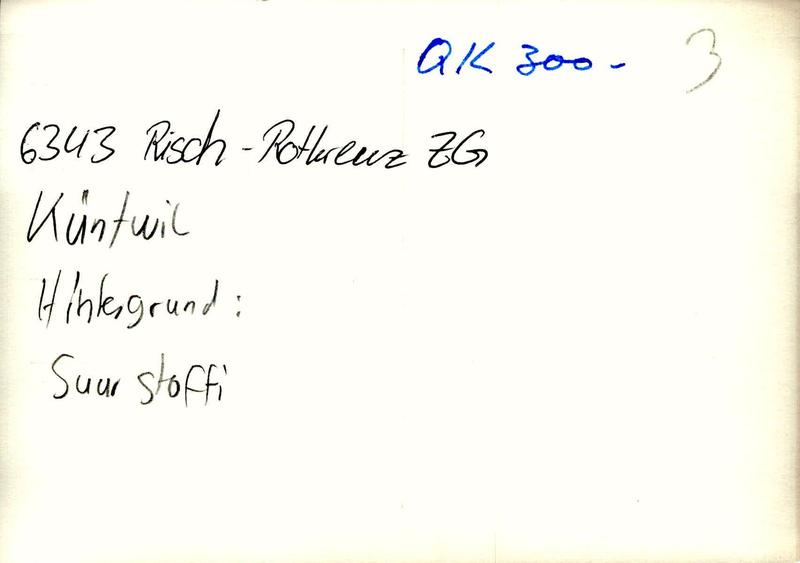 QK 300.-
3
6343 Risch-Rotkreuz ZG
Küntwil
Hintergrund:
Suurstoffi